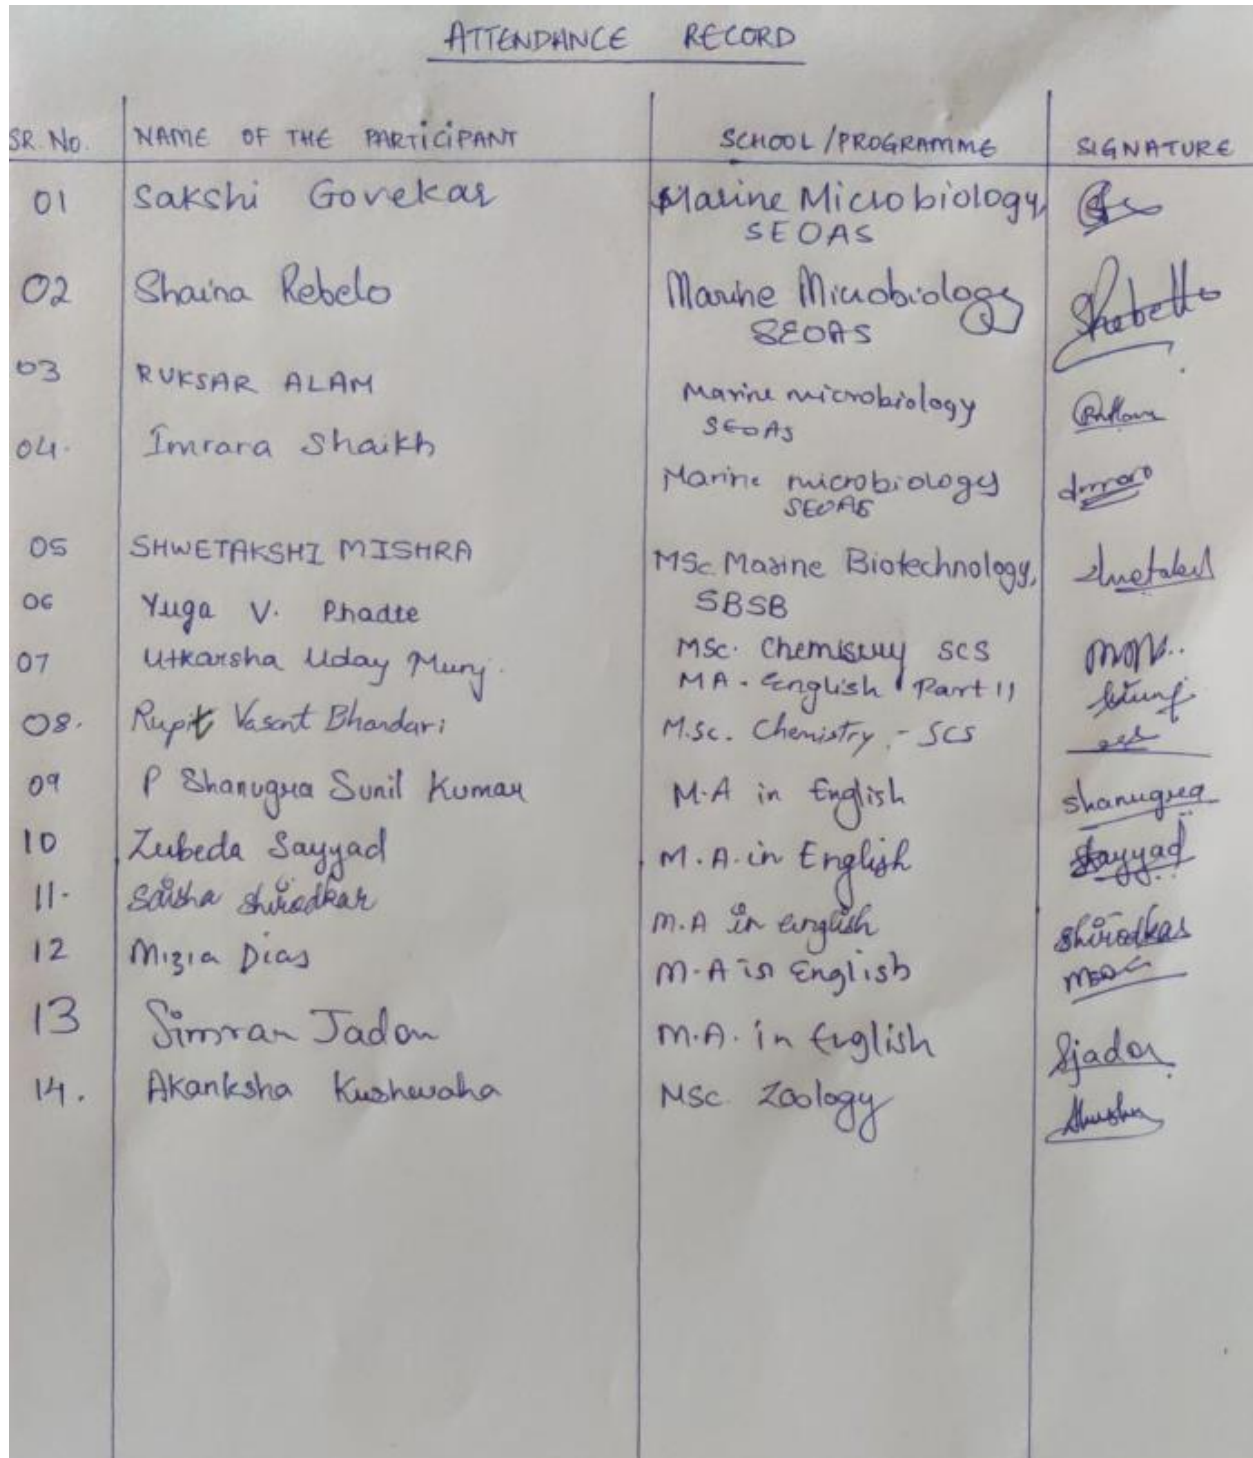 ATTENDANCE RECORD
SR. No. NAME OF THE PARTICIPANT SCHOOL/PROGRAMME SIGNATURE
01 Sakshi Govekar Marine Microbiology,
SEOAS
02 Shaina Rebelo Marine Microbiology SRebello
SEOAS
03 RUKSAR ALAM Marine microbiology
SEOAS
04. Imrana Shaikh Marine microbiology
SEOAS
05 SHWETAKSHI MISHRA MSc Marine Biotechnology,
SBSB
06 Yuga V. Phadte MSc. Chemistry SCS
07 Utkarsha Uday Munj. MA. English Part II
08. Rupit Vasant Bhandari M.Sc. Chemistry - SCS
09 P Shanugra Sunil Kumar M.A in English Shanugra
10 Zubeda Sayyad M.A. in English Sayyad
11. Saisha Shirodkar M.A in english Shirodkar
12 Mizia Dias M.A in English
13 Simran Jadon M.A. in English Sjadon
14. Akanksha Kushwaha MSc. Zoology